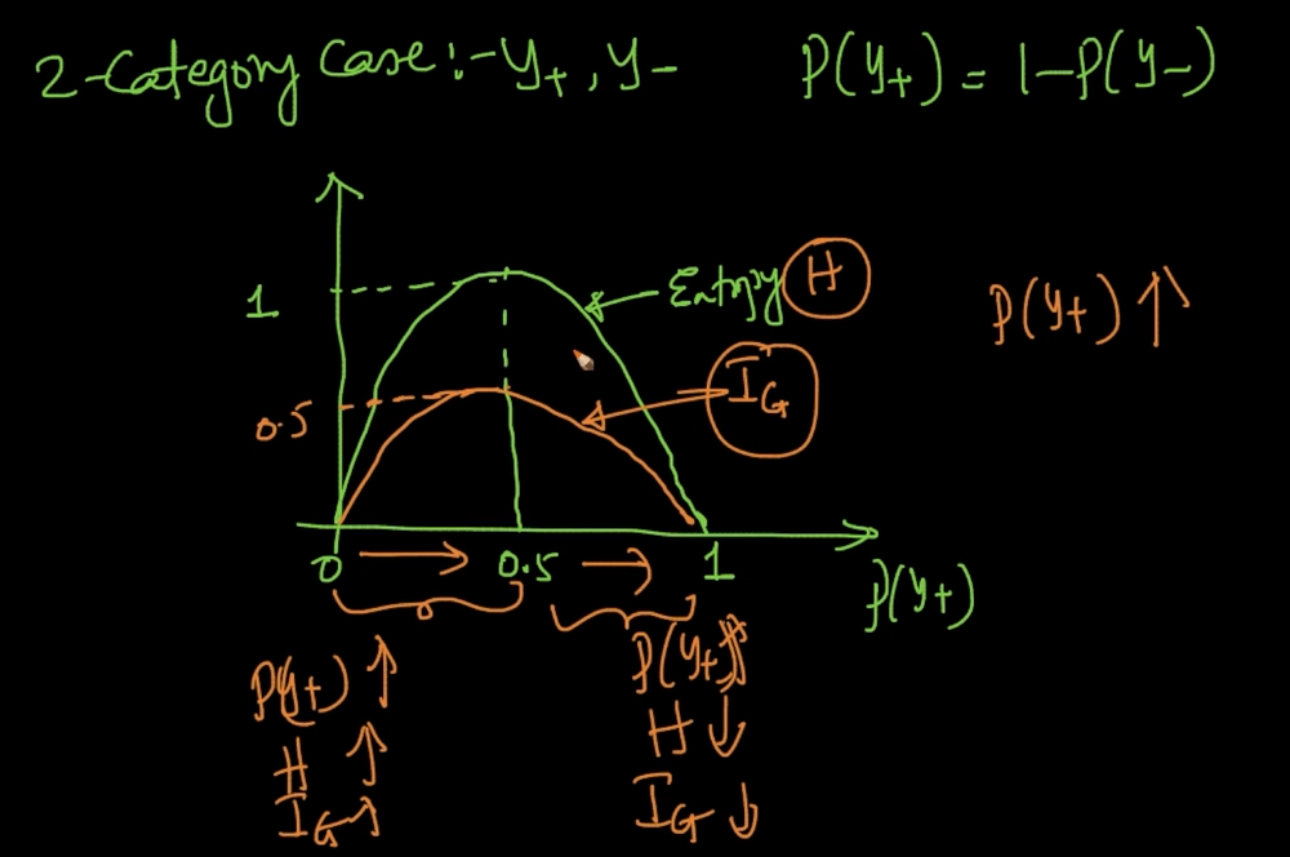 2-Category Case:- y+, y-
P(y+) = 1-P(y-)
1
Entropy H
P(y+) ↑
IG
0.5
0 → 0.5 → 1
P(y+)
P(y+) ↑
H ↑
IG ↑
P(y+) ↑
H ↓
IG ↓